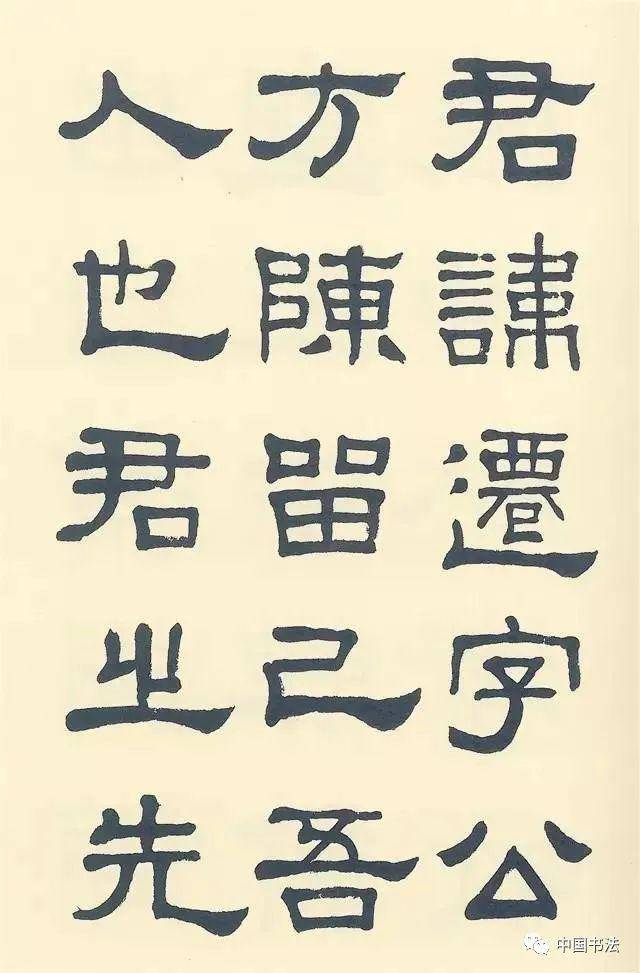 君諱遷字公
方陳留己吾
人也君之先
中国书法